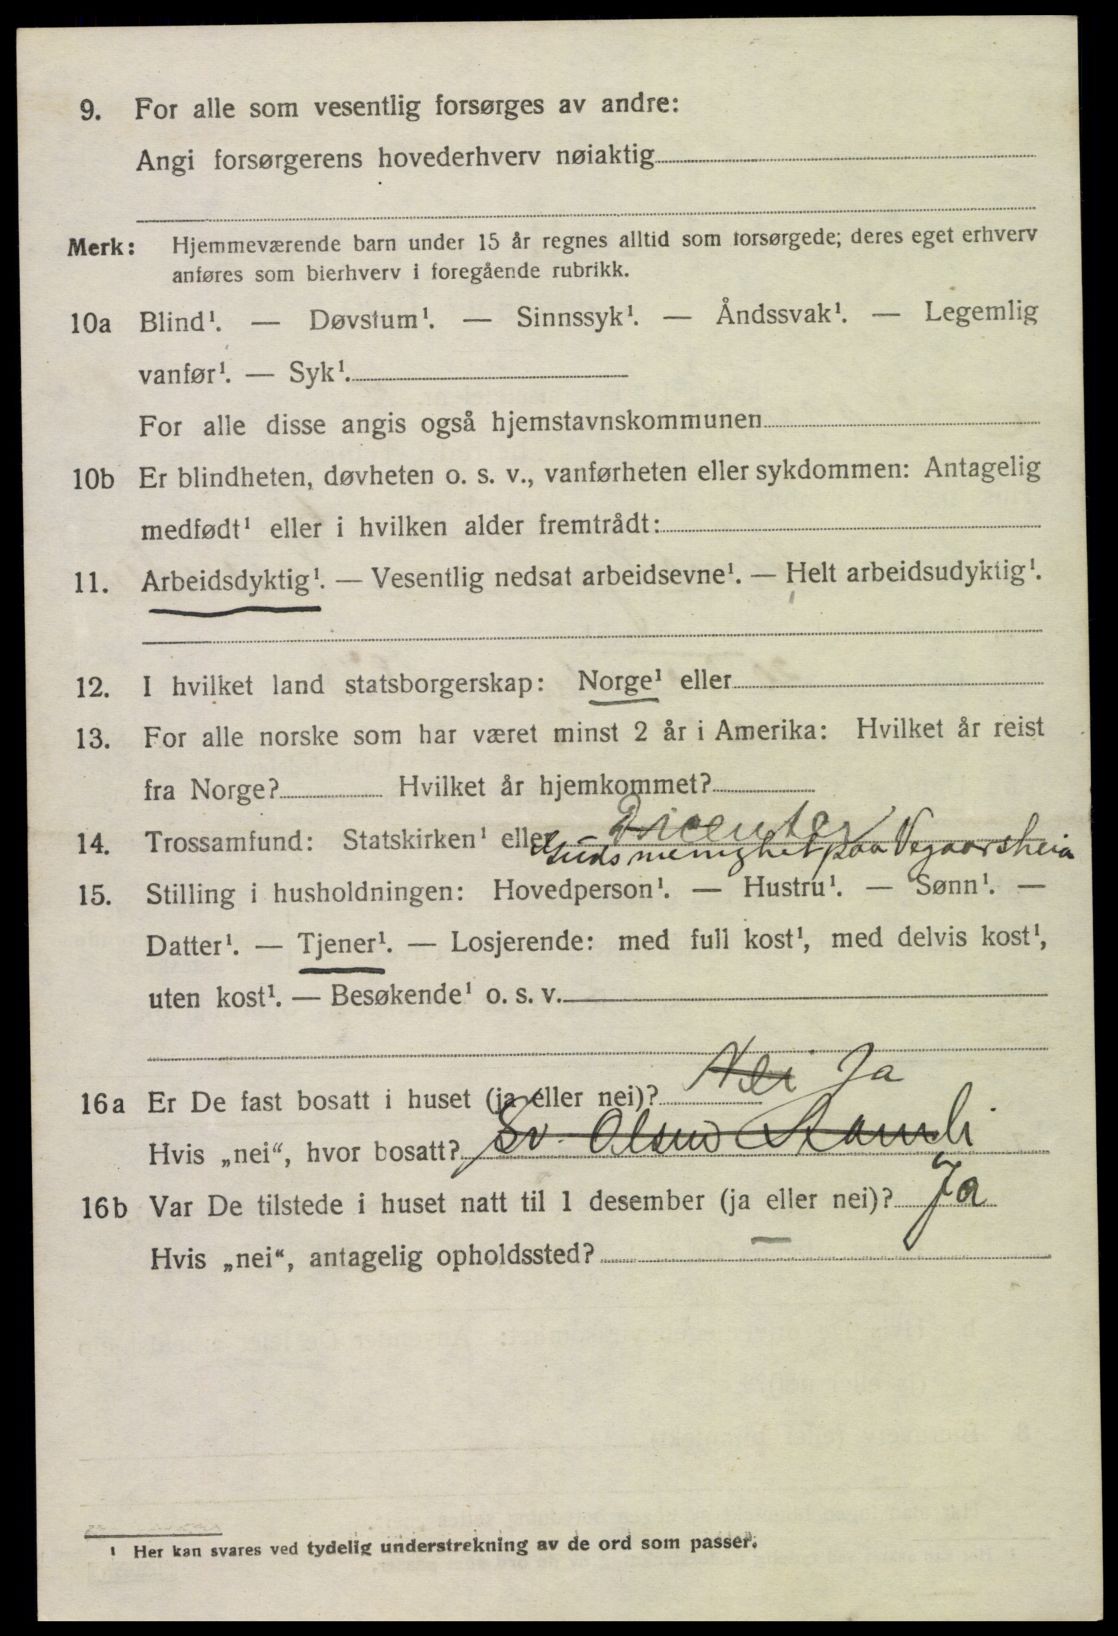 9. For alle som vesentlig forsørges av andre:
Angi forsørgerens hovederhverv nøiaktig
Merk: Hjemmeværende barn under 15 år regnes alltid som forsørgede; deres eget erhverv
anføres som bierhverv i foregående rubrikk.
10a Blind¹. — Døvstum¹. — Sinnssyk¹. — Åndssvak¹. — Legemlig
vanfør¹. — Syk¹.
For alle disse angis også hjemstavnskommunen
10b Er blindheten, døvheten o. s. v., vanførheten eller sykdommen: Antagelig
medfødt¹ eller i hvilken alder fremtrådt:
11. Arbeidsdyktig¹. — Vesentlig nedsat arbeidsevne¹. — Helt arbeidsudyktig¹.
12. I hvilket land statsborgerskap: Norge¹ eller
13. For alle norske som har været minst 2 år i Amerika: Hvilket år reist
fra Norge? Hvilket år hjemkommet?
Dicenter
14. Trossamfund: Statskirken¹ eller Guds menighet paa Vegaarsheia
15. Stilling i husholdningen: Hovedperson¹. — Hustru¹. — Sønn¹. —
Datter¹. — Tjener¹. — Losjerende: med full kost¹, med delvis kost¹,
uten kost¹. — Besøkende¹ o. s. v.
16a Er De fast bosatt i huset (ja eller nei)? Nei Ja
Hvis „nei“, hvor bosatt? Sv. Olsen
16b Var De tilstede i huset natt til 1 desember (ja eller nei)? Ja
Hvis „nei“, antagelig opholdssted?
¹ Her kan svares ved tydelig understrekning av de ord som passer.